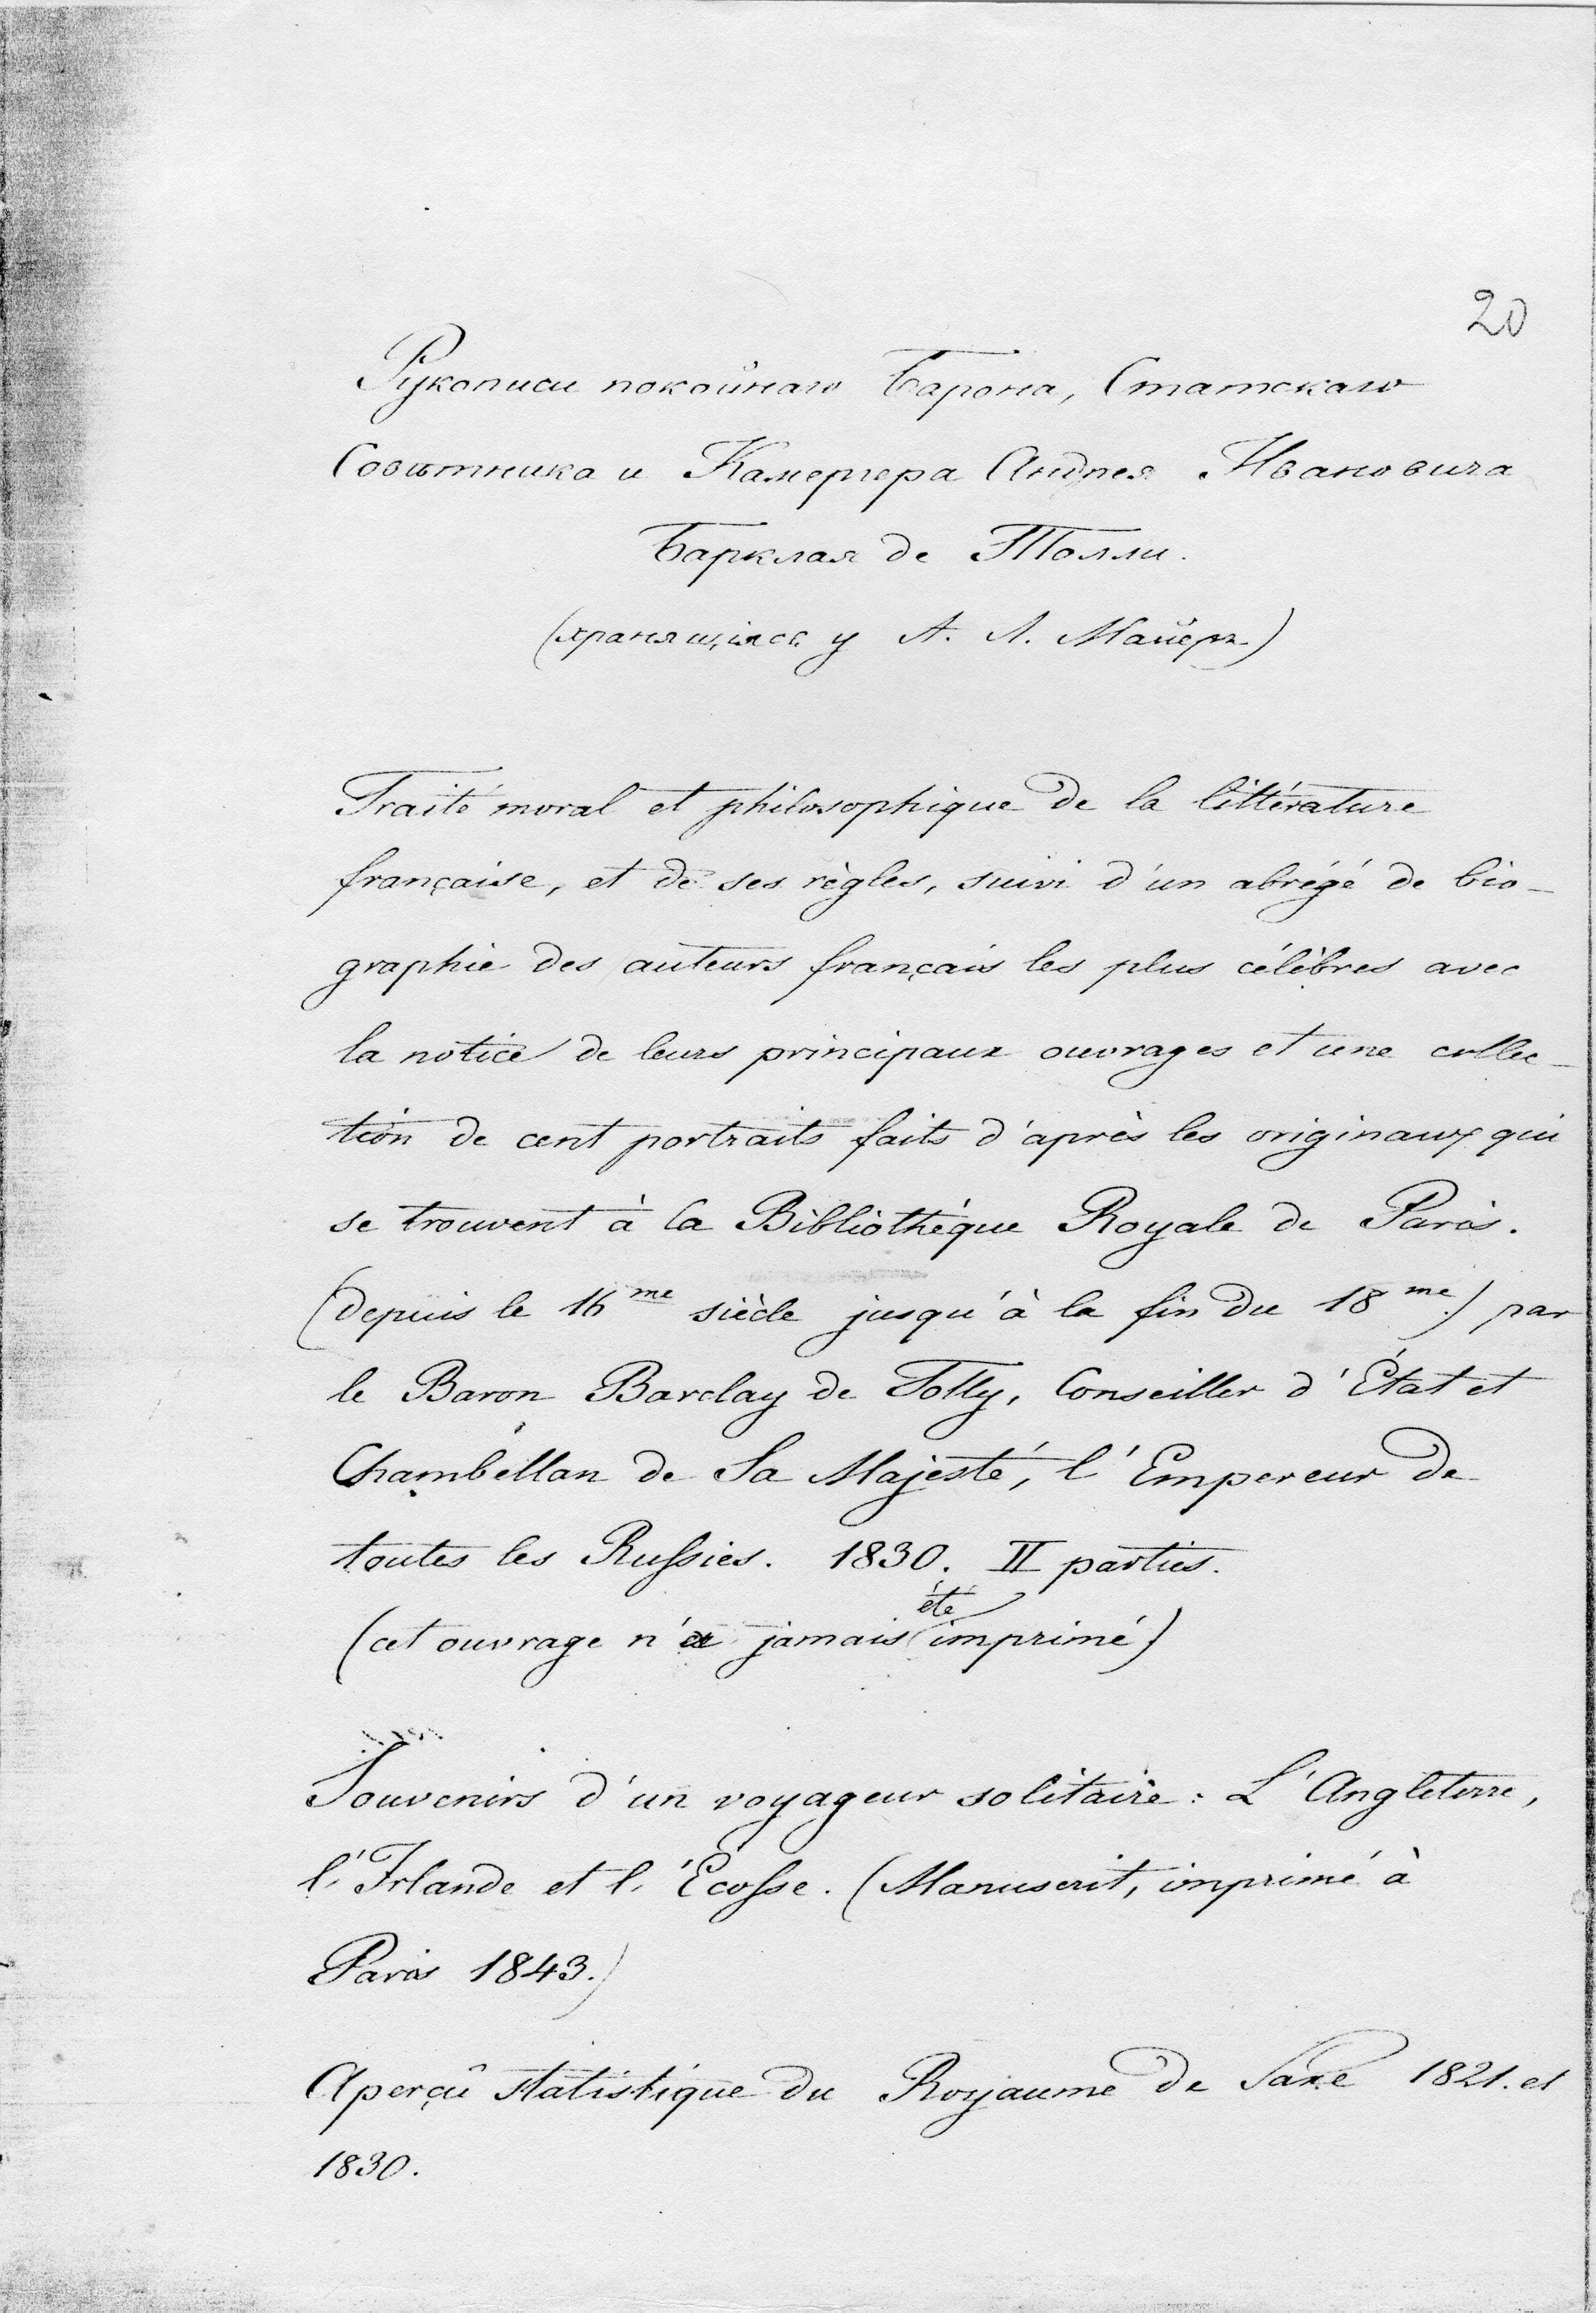 20
Рукописи покойнаго Барона, Статскаго
Совѣтника и Камергера Андрея Ивановича
Барклая де Толли.
(хранящіяся у А. Л. Майеръ)
Traité moral et philosophique de la littérature
française, et de ses règles, suivi d'un abrégé de bio-
graphie des auteurs français les plus célèbres avec
la notice de leurs principaux ouvrages et une collec-
tion de cent portraits faits d'après les originaux qui
se trouvent à la Bibliothèque Royale de Paris.
(depuis le 16me siècle jusqu'à la fin du 18me) par
le Baron Barclay de Tolly, Conseiller d'État et
Chambellan de Sa Majesté, l'Empereur de
toutes les Russies. 1830. II parties.
(cet ouvrage n'a jamais été imprimé)
Souvenirs d'un voyageur solitaire: L'Angleterre,
l'Irlande et l'Écosse. (Manuscrit, imprimé à
Paris 1843.)
Aperçû statistique du Royaume de Saxe 1821. et
1830.